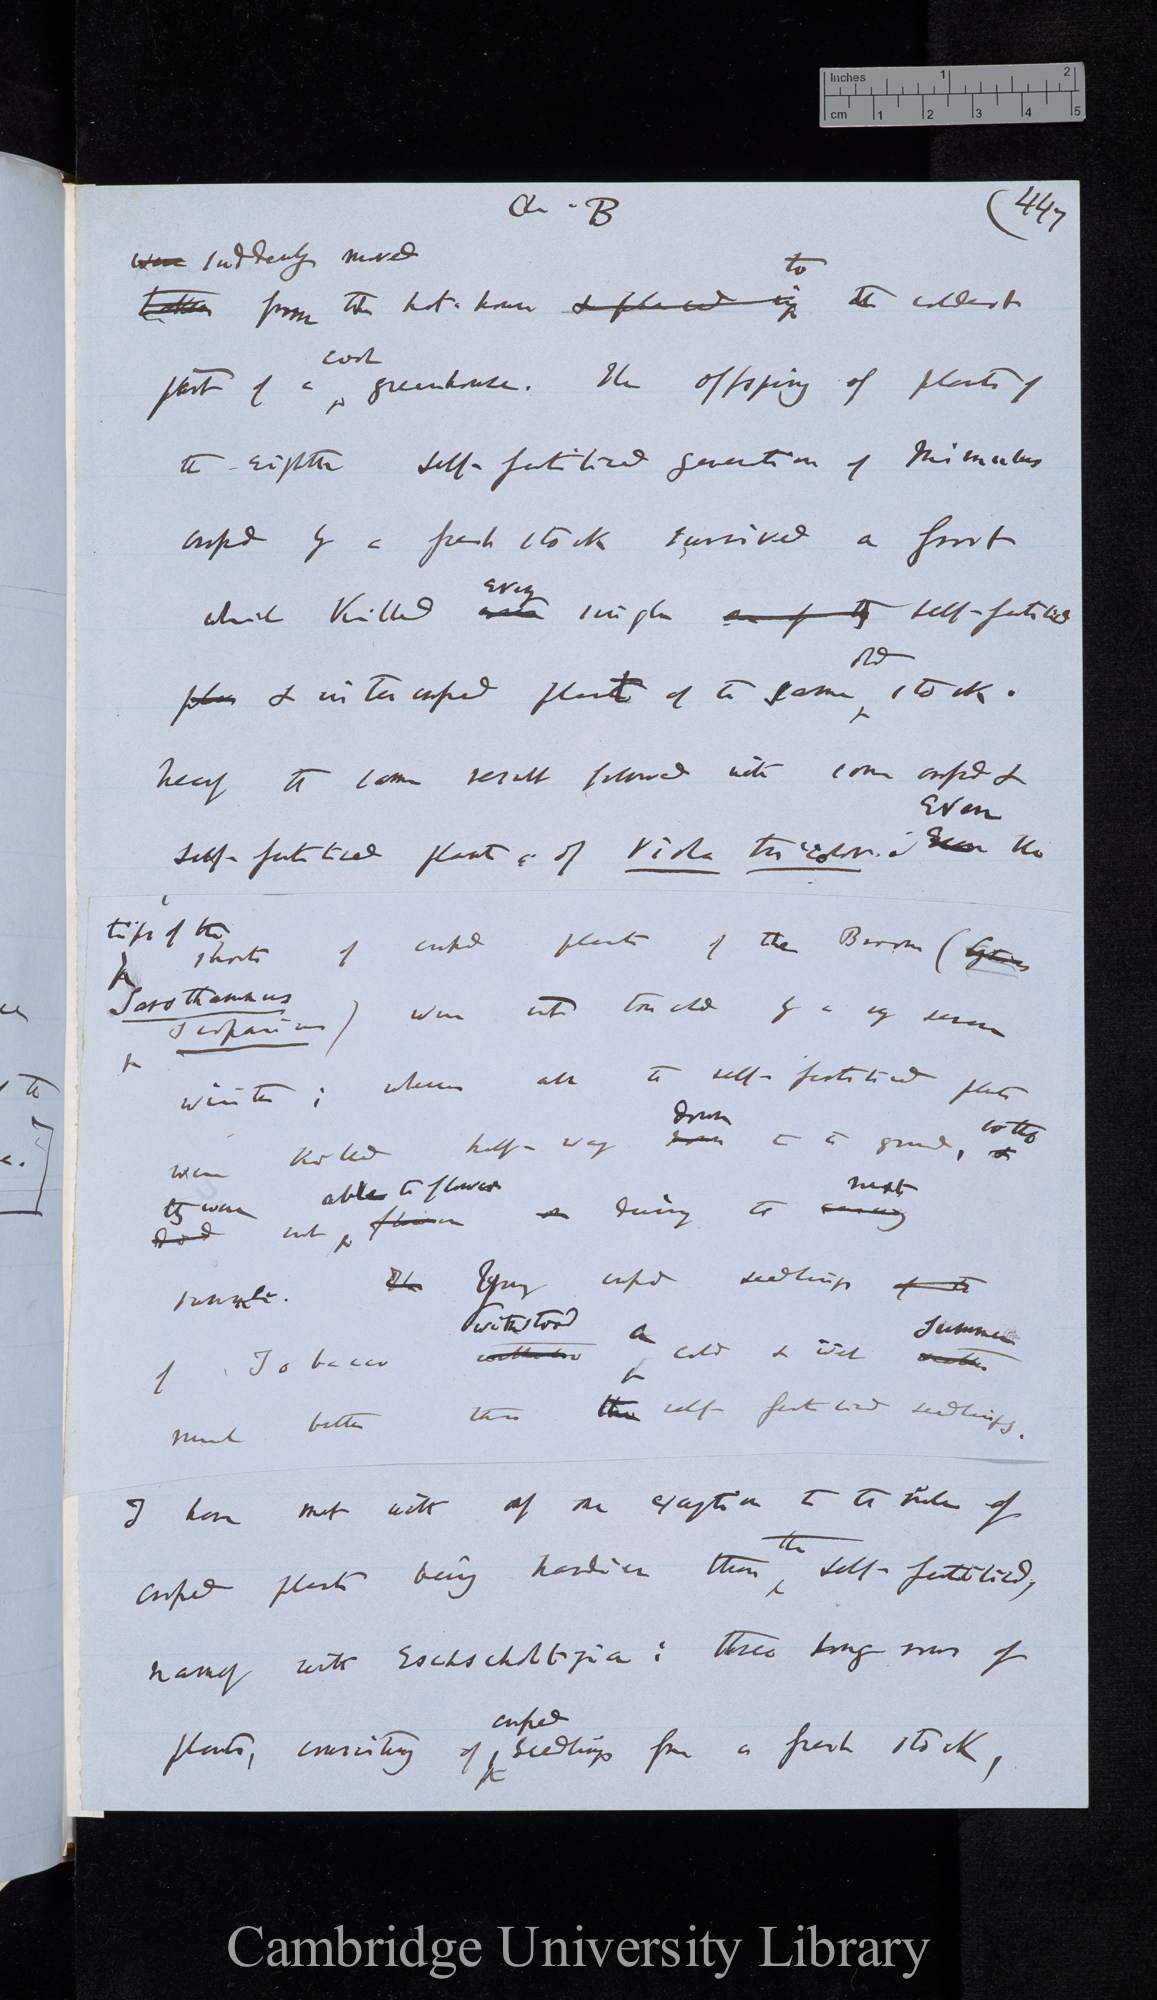 Inches 1 2
cm 1 2 3 4 5
Ch - B
(447
were suddenly moved
to
taken from the hot-house & placed in the coldest
cool
part of a greenhouse. The offspring of plants of
the eighth self-fertilised generation of Mimulus
crossed by a fresh stock survived a frost
every
which killed single one of the self-fertilised
old
plan & intercrossed plants of the same stock.
Nearly the same result followed with some crossed &
Even
self-fertilised plants of Viola tricolor. Even the
tips of the
shoots of crossed plants of the Broom (Cytisus
Sarothamnus
scoparius) were not touched by a very severe
winter; whereas all the self-fertilised plants
down
were killed half-way down to the ground, so that
they were able to flower next
did not flower during the
summer. The Young crossed seedlings of the
withstood a summer
of Tobacco cold & wet
much better than the self-fertilised seedlings.
I have met with only one exception to the rule of
the
crossed plants being hardier than self-fertilised,
namely with Eschscholtzia: three long rows of
crossed
plants, consisting of seedlings from a fresh stock,
Cambridge University Library